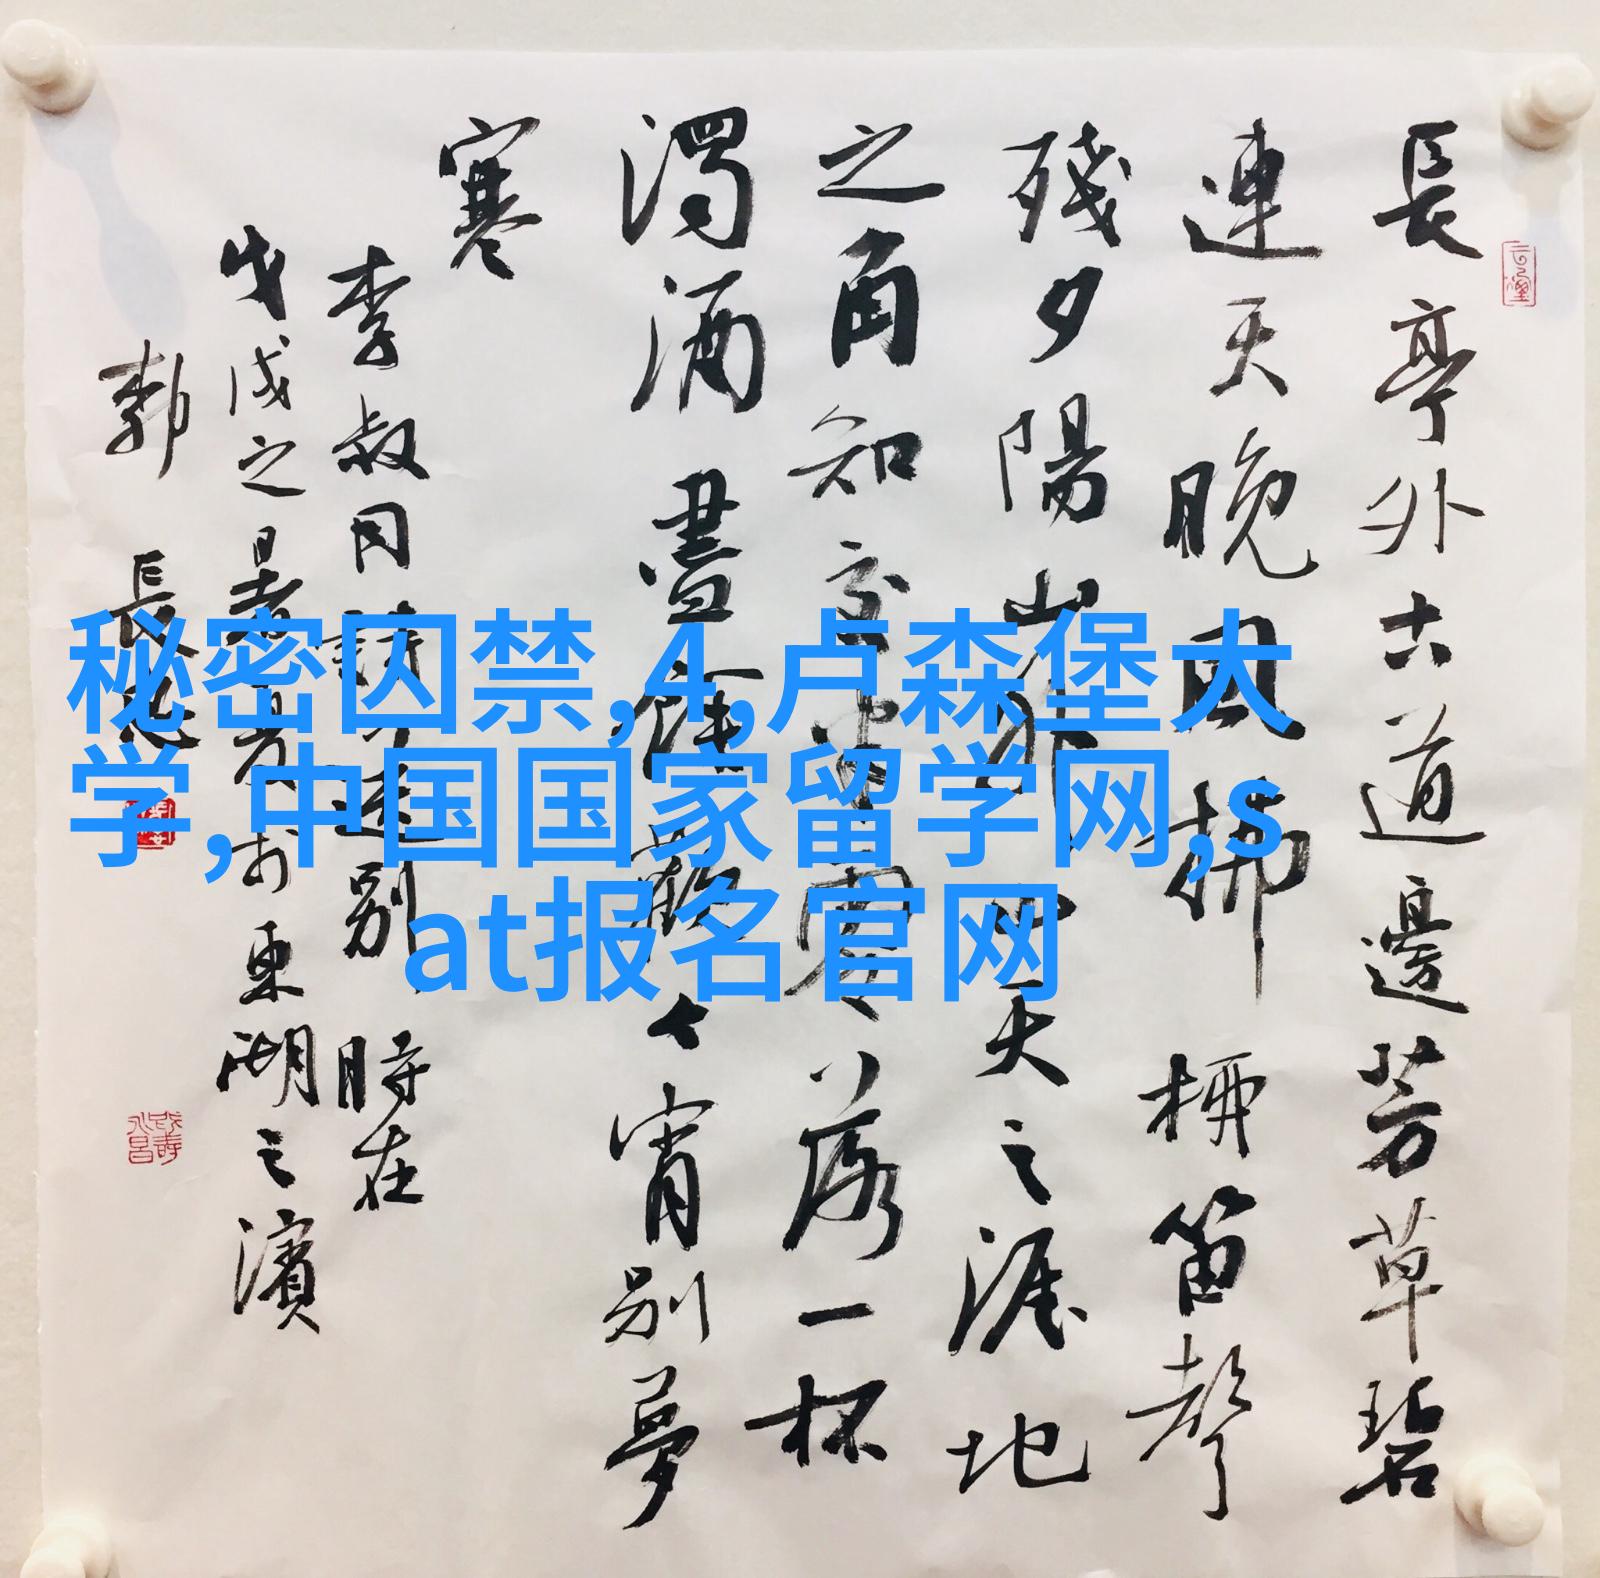 長亭外古道邊芳草碧
連天晚風拂柳笛聲
殘夕陽山外山天之涯地
之角知交半零落一杯
濁酒盡餘歡今宵別夢
寒
李叔同詩送別時在
戊戌之暑月於東湖之濱
郭長
秘密囚禁,4,卢森堡大
学,中国国家留学网,s
at报名官网